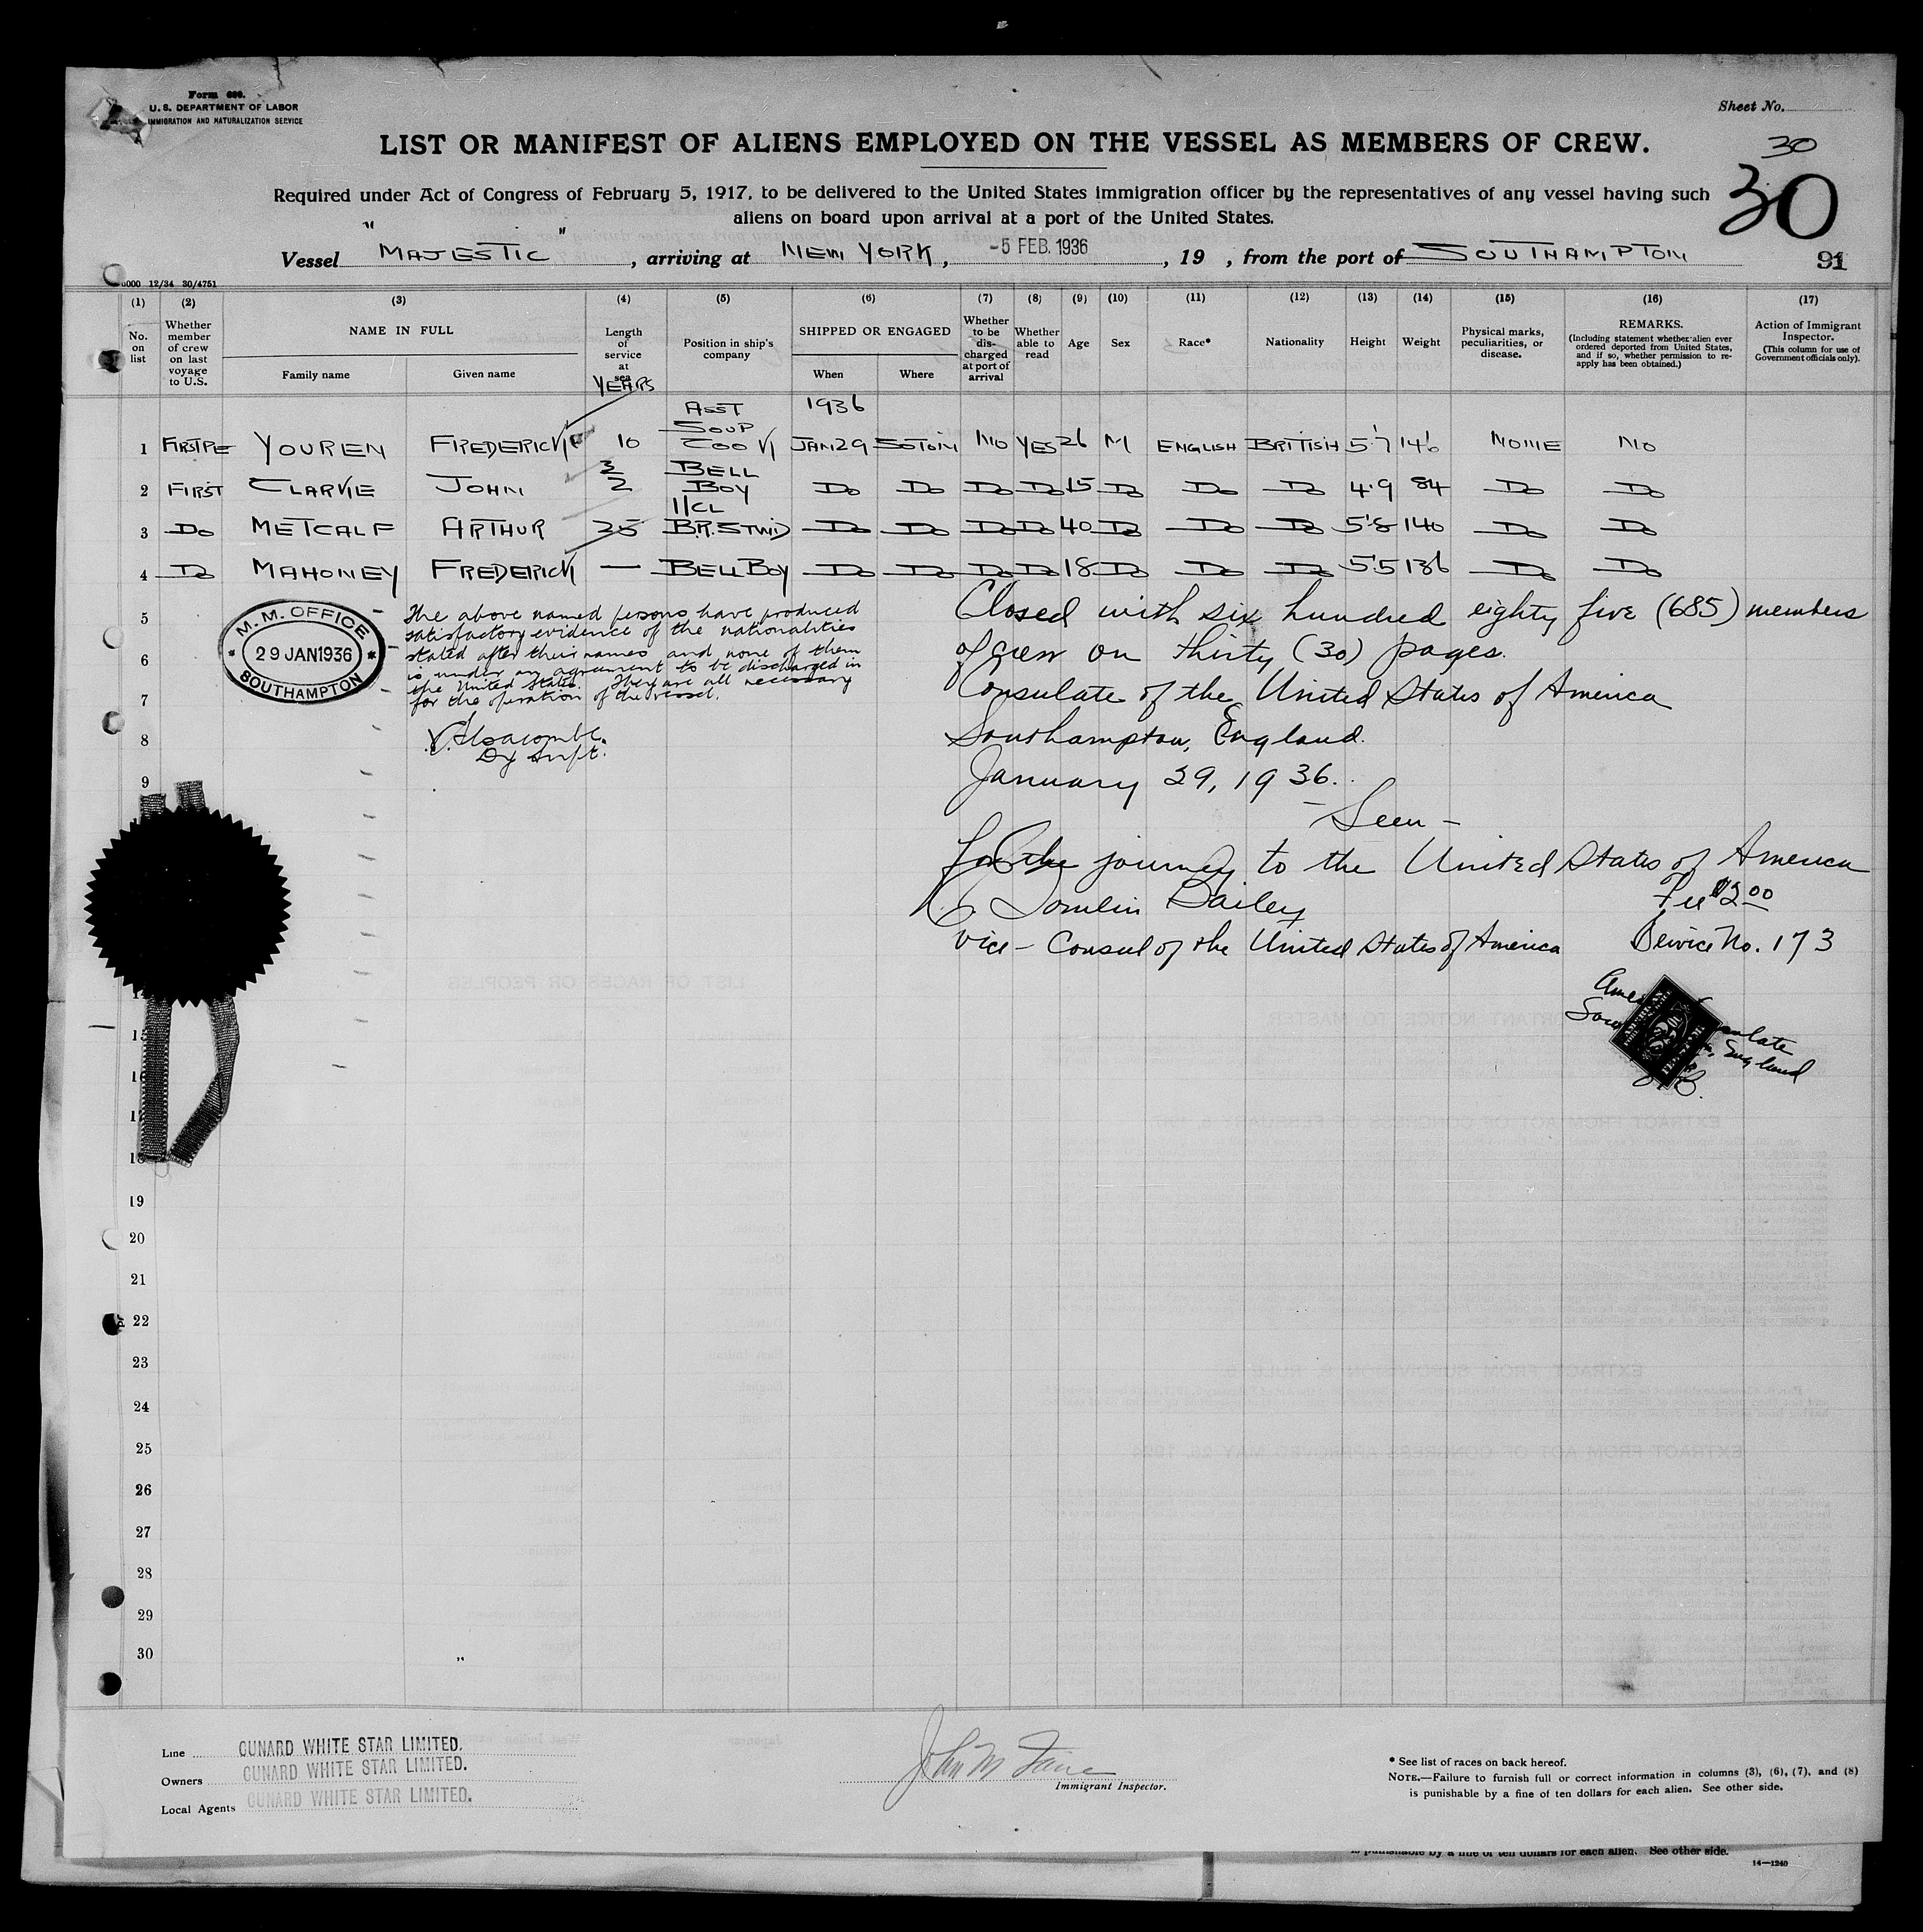 Form 689.
U. S. DEPARTMENT OF LABOR
IMMIGRATION AND NATURALIZATION SERVICE
Sheet No.
LIST OR MANIFEST OF ALIENS EMPLOYED ON THE VESSEL AS MEMBERS OF CREW.
30
30
Required under Act of Congress of February 5, 1917, to be delivered to the United States immigration officer by the representatives of any vessel having such
aliens on board upon arrival at a port of the United States.
Vessel "MAJESTIC", arriving at NEW YORK, -5 FEB. 1936, 19 , from the port of SOUTHAMPTON
91
000 12/34 30/4751
(1) (2) (3) (4) (5) (6) (7) (8) (9) (10) (11) (12) (13) (14) (15) (16) (17)
No. on list
Whether member of crew on last voyage to U.S.
NAME IN FULL
Family name
Given name
Length of service at sea
YEARS
Position in ship's company
SHIPPED OR ENGAGED
When
Where
Whether to be discharged at port of arrival
Whether able to read
Age
Sex
Race*
Nationality
Height
Weight
Physical marks, peculiarities, or disease.
REMARKS.
(Including statement whether alien ever ordered deported from United States, and if so, whether permission to re-apply has been obtained.)
Action of Immigrant Inspector.
(This column for use of Government officials only).
ASST 1936
SOUP
1 YOUREN FREDERICK 10 COOK JAN 29 SOTON NO YES 26 M ENGLISH BRITISH 5'7 146 NONE NO
BELL
2 FIRST CLARKE JOHN 2 BOY DO DO DO DO 15 DO DO DO 4'9 84 DO DO
II CL
3 DO METCALF ARTHUR 25 B.R. STWD DO DO DO DO 40 DO DO DO 5'8 140 DO DO
4 DO MAHONEY FREDERICK — BELL BOY DO DO DO DO 18 DO DO DO 5'5 136 DO DO
M. M. OFFICE
29 JAN 1936
SOUTHAMPTON
The above named persons have produced
satisfactory evidence of the nationalities
stated after their names and none of them
is under any agreement to be discharged in
the United States. They are all necessary
for the operation of the vessel.
Dy Supt.
Closed with six hundred eighty five (685) members
of crew on thirty (30) pages.
Consulate of the United States of America
Southampton, England.
January 29, 1936.
— Seen —
For the journey to the United States of America
Tomlin Bailey
Fee $2.00
Vice-Consul of the United States of America
Service No. 173
England
5
6
7
8
9
15
16
17
18
19
20
21
22
23
24
25
26
27
28
29
30
Line CUNARD WHITE STAR LIMITED.
Owners CUNARD WHITE STAR LIMITED.
Local Agents CUNARD WHITE STAR LIMITED.
John M
Immigrant Inspector.
* See list of races on back hereof.
NOTE.—Failure to furnish full or correct information in columns (3), (6), (7), and (8)
is punishable by a fine of ten dollars for each alien. See other side.
is punishable by a fine of ten dollars for each alien. See other side.
14—1240